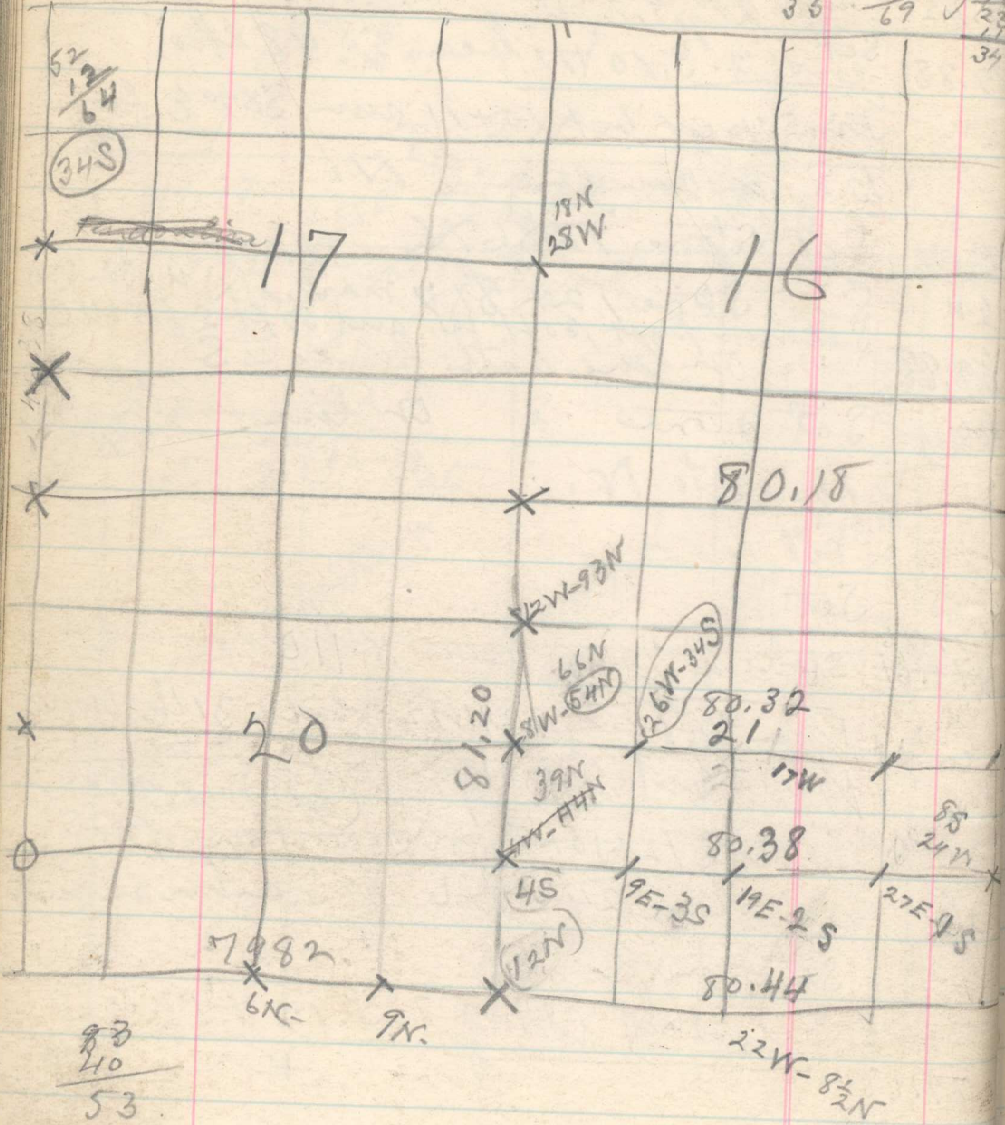 35 69
34
52
12
64
34S
18N
28W
17 16
80.18
12W-93N
66N
8W-54N
26W-34S
80.32
20
81,20
21
17W
39N
W-114N
80.38
8S
24W
4S
9E-3S
19E-2S
27E-
12N
7982
80.44
6N-
9N.
22W-8½N
40
53